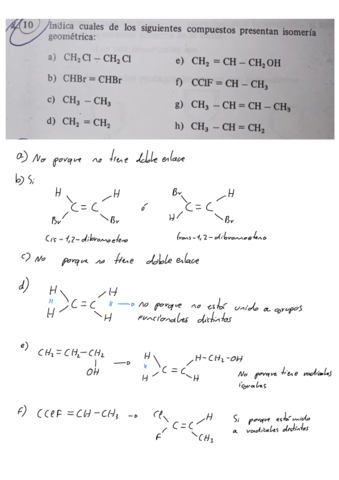 10 Indica cuales de los siguientes compuestos presentan isomería
geométrica:
a) CH₂Cl – CH₂Cl
e) CH₂ = CH – CH₂OH
b) CHBr = CHBr
f) CClF = CH – CH₃
c) CH₃ – CH₃
g) CH₃ – CH = CH – CH₃
d) CH₂ = CH₂
h) CH₃ – CH = CH₂
a) No porque no tiene doble enlace
b) Si
H H Br H
C = C ó C = C
Br Br H Br
Cis-1,2-dibromoeteno trans-1,2-dibromoeteno
c) No porque no tiene doble enlace
d) H H
C = C no porque no está unido a grupos
H H funcionales distintos
e) CH₂=CH₂-CH₂
OH
H H-CH₂-OH
C = C
H H
No porque tiene radicales
iguales
F) CClF = CH - CH₃
Cl H
C = C
F CH₃
Si porque está unido
a radicales distintos